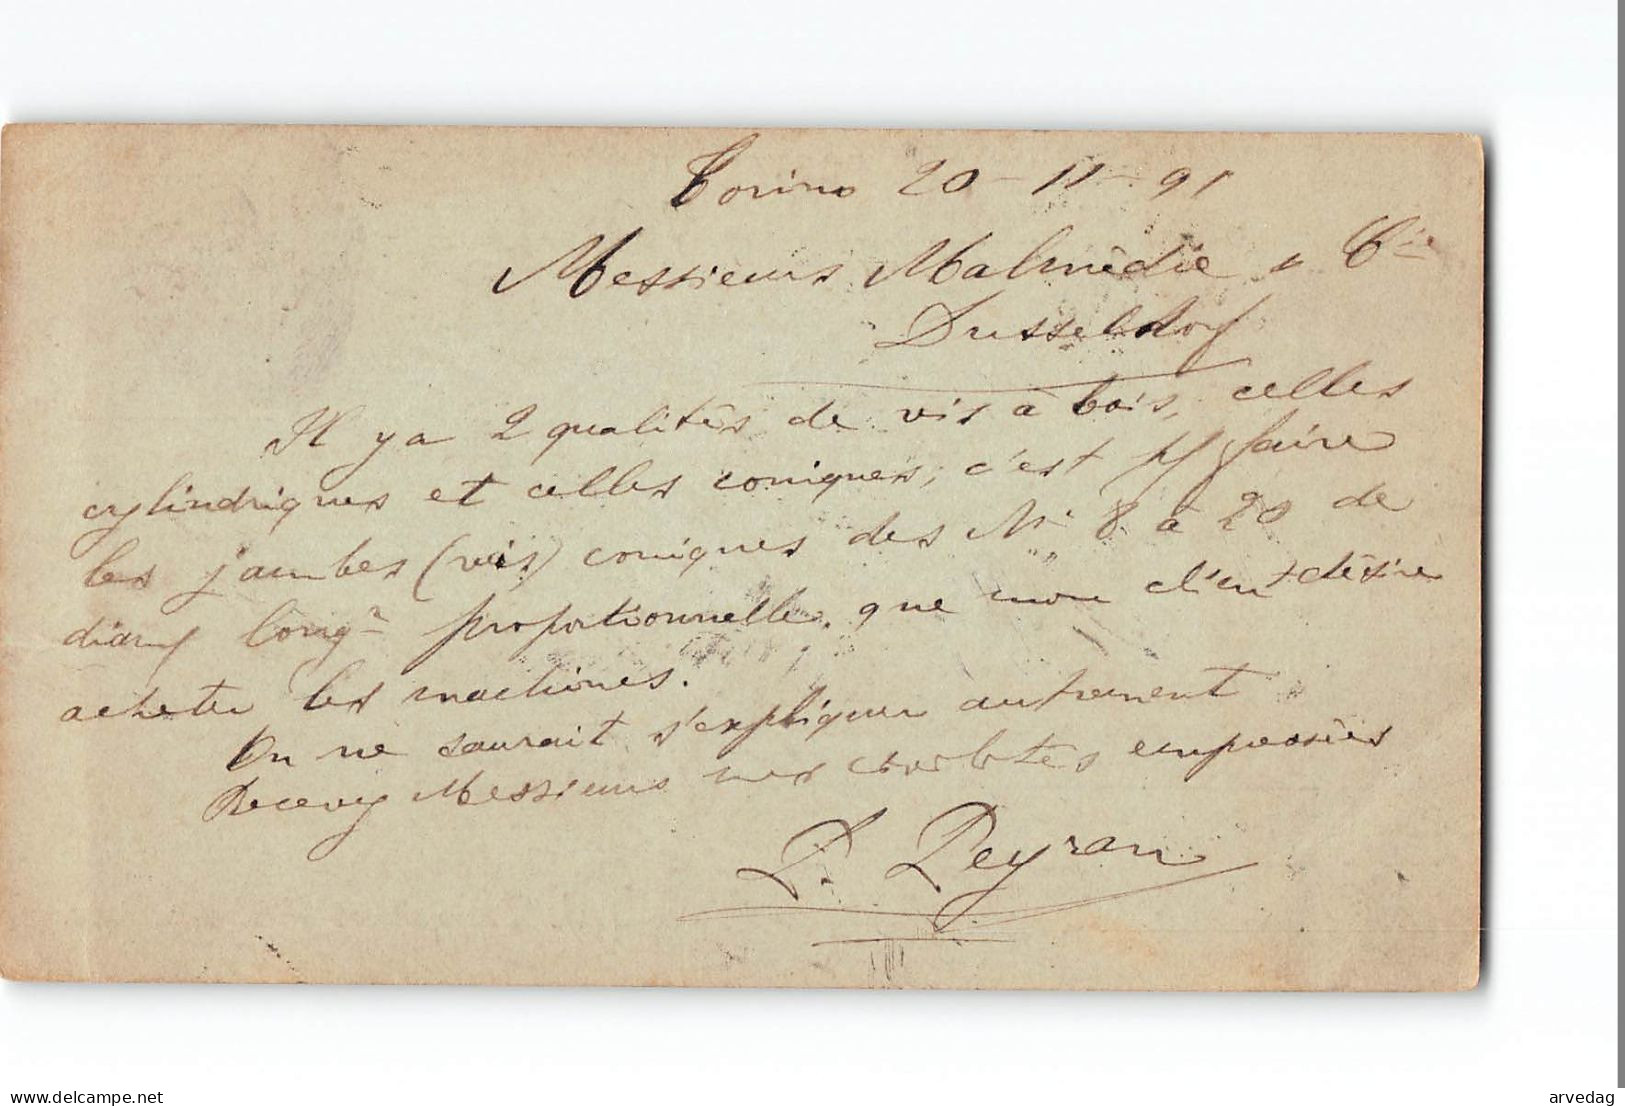 Torino 20-11-91
Messieurs Malmèdie & Cie
Dusseldorf
Il y a 2 qualitès de vis à bois, celles
cylindriques et celles coniques, c'est pr faire
les jambes (vis) coniques des No 8 à 20 de
diamr longr proportionnelle, que mon client dèsire
acheter les machines.
On ne saurait s'expliquer autrement
Recevez Messieurs mes empressèes
P. Peyran
delcampe.net
arvedag